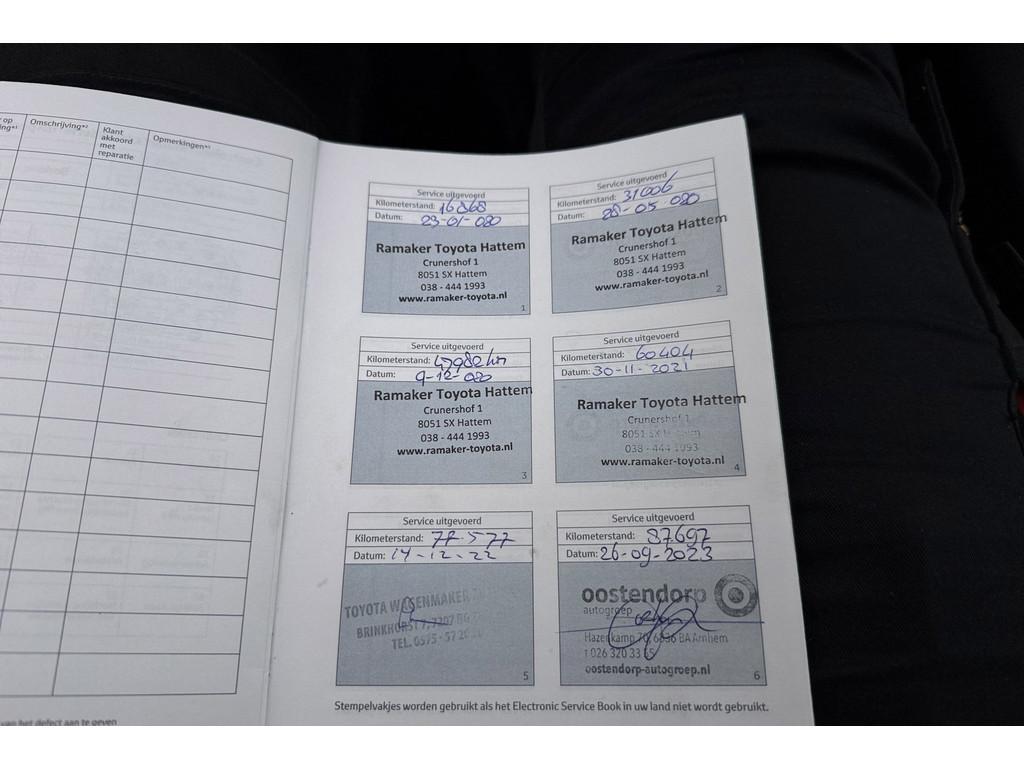 op
Omschrijving*²
Klant
akkoord
met
reparatie
Opmerkingen*³
Service uitgevoerd
Kilometerstand: 16868
Datum: 23-01-020
Ramaker Toyota Hattem
Crunershof 1
8051 SX Hattem
038 - 444 1993
www.ramaker-toyota.nl
1
Service uitgevoerd
Kilometerstand: 31006
Datum: 28-05-020
Ramaker Toyota Hattem
Crunershof 1
8051 SX Hattem
038 - 444 1993
www.ramaker-toyota.nl
2
Service uitgevoerd
Kilometerstand:
Datum: 9-12-020
Ramaker Toyota Hattem
Crunershof 1
8051 SX Hattem
038 - 444 1993
www.ramaker-toyota.nl
3
Service uitgevoerd
Kilometerstand: 60404
Datum: 30-11-2021
Ramaker Toyota Hattem
Crunershof 1
8051 SX Hattem
038 - 444 1993
www.ramaker-toyota.nl
4
Service uitgevoerd
Kilometerstand: 77.577
Datum: 14-12-22
TOYOTA WAGENMAKER
BRINKHORST 7, 7207 BG
TEL. 0575 - 57 20
5
Service uitgevoerd
Kilometerstand: 87697
Datum: 26-09-2023
oostendorp
autogroep
Hazenkamp 70, 6836 BA Arnhem
t 026 320 33
oostendorp-autogroep.nl
6
Stempelvakjes worden gebruikt als het Electronic Service Book in uw land niet wordt gebruikt.
van het defect aan te geven